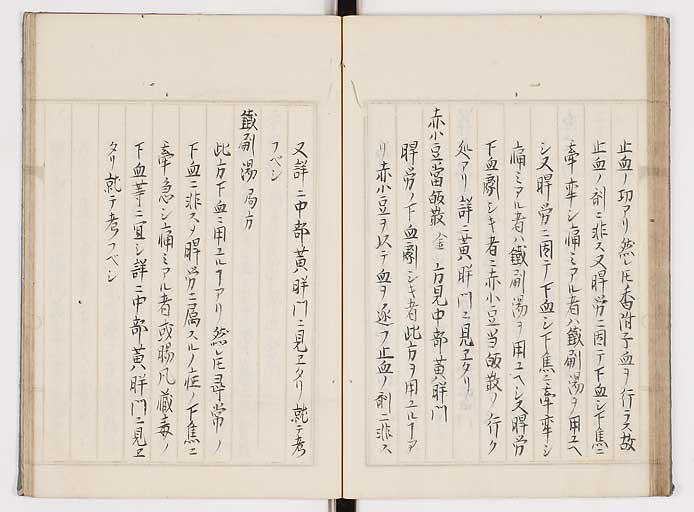 止血ノ功アリ然レ𪜈香附子血ヲ行ラス故
止血ノ剤ニ非ス又脾労ニ因テ下血シ下焦ニ
牽牽シ痛ミアル者ハ鐵刷湯ヲ用ユヘ
シ又脾労ニ因テ下血シ下焦ニ牽牽シ
痛ミアル者ハ鐵刷湯ヲ用ユヘシ又脾労
下血劇シキ者ニ赤小豆当皈散ノ行ク
処アリ詳ニ黄胖門ニ見ヱタリ
赤小豆當皈散 金 方見中部黄胖門
脾労ノ下血劇シキ者此方ヲ用ユルヿア
リ赤小豆ヲ以テ血ヲ逐フ止血ノ剤ニ非ス
又詳ニ中部黄胖門ニ見ヱタリ就テ考
フベシ
鐵刷湯 局方
此方下血ニ用ユルヿアリ然レ𪜈尋常ノ
下血ニ非ス脾労ニ属スルノ症ノ下焦ニ
牽急シ痛ミアル者或腸風蔵毒ノ
下血等ニ宜シ詳ニ中部黄胖門ニ見ヱ
タリ就テ考フベシ